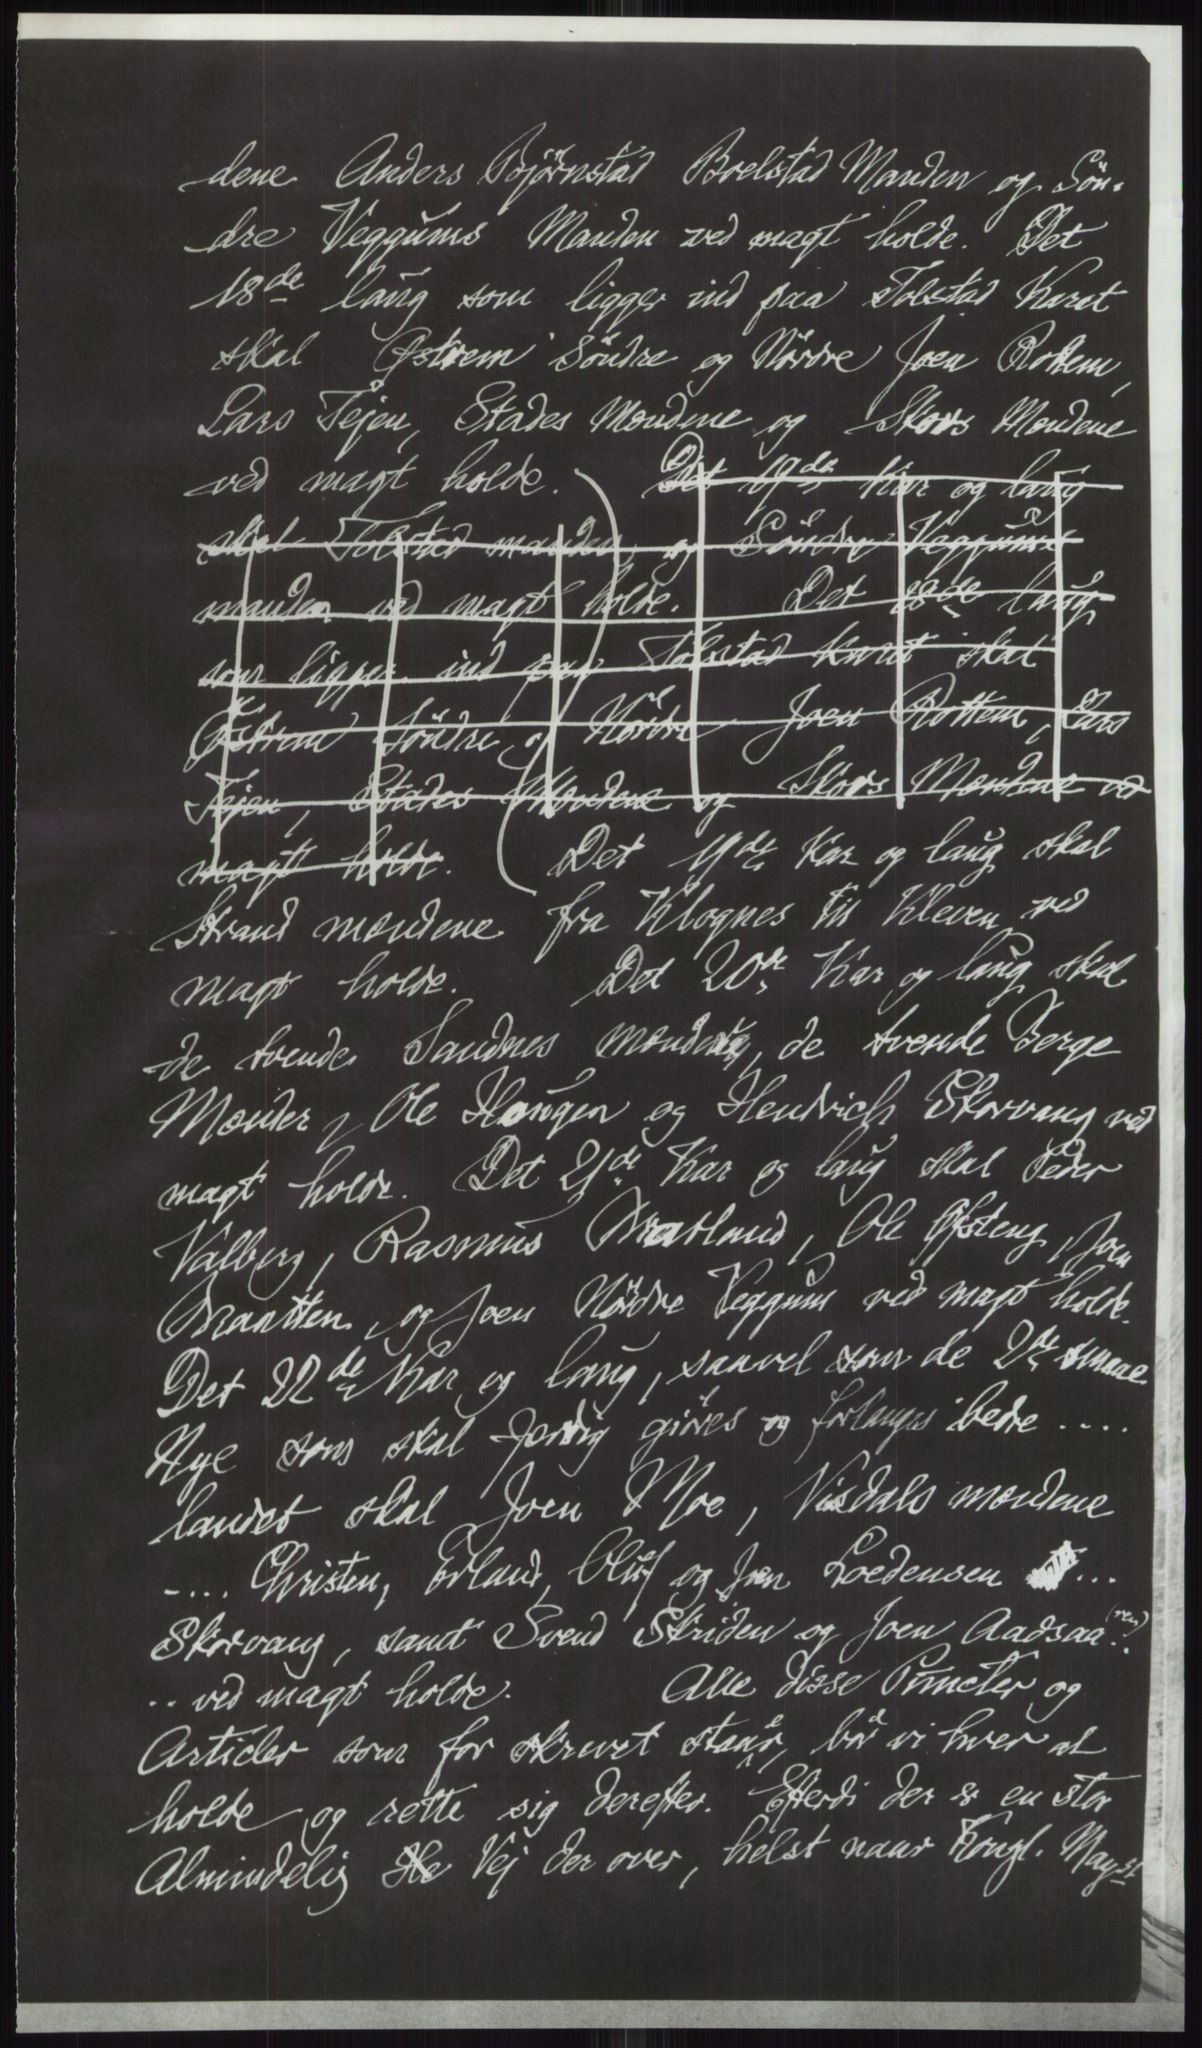 dene Anders Bjørnstad Boelstad Manden og Søn-
dre Veggums Manden ved magt holde. Det
18de laug som ligger ind paa Tolstad Karet
skal Østrem Söndre og Nördre Joen Rottem,
Lars Tejen, Stades Mændene og Skors Mændene
ved magt holde. Det 19de Kar og laug
skal Tolstad manden og Söndre Veggums
manden ved magt holde. Det 18de laug
som ligger ind paa Tolstad Karet skal
Østrem Söndre og Nördre Joen Rottem, Lars
Tejen, Stades Mændene og Skors Mændene ved
magt holde. Det 19de Kar og laug skal
Strand mændene fra Klognes til Kleven ved
magt holde. Det 20de Kar og laug skal
de tvende Sandnes mændene, de tvende Berge
Mænder, Ole Haugen og Hendrich Skorvang ved
magt holde. Det 21de Kar og laug skal Peder
Valberg, Rasmus Ole Øfsteng, Joen
Braatten, og Joen Nördre Veggum ved magt holde.
Det 22de Kar og laug, saavel som de 2de smaae
Nye som skal færdig giöres og forlanges bedre ....
landet skal Joen Moe, Visdals mændene
.... Christen, Erland, Oluf og Joen Loedensen ...
Skorvang, samt Svend Skriden og Joen Aadsaa(ren)..
.. ved magt holde. Alle disse Puncter og
Articler som for skrevet staar, bör vi hver at
holde og rette sig derefter. Efterdi der er en stor
Almindelig Vej der over, helst naar Kongl. Mayst